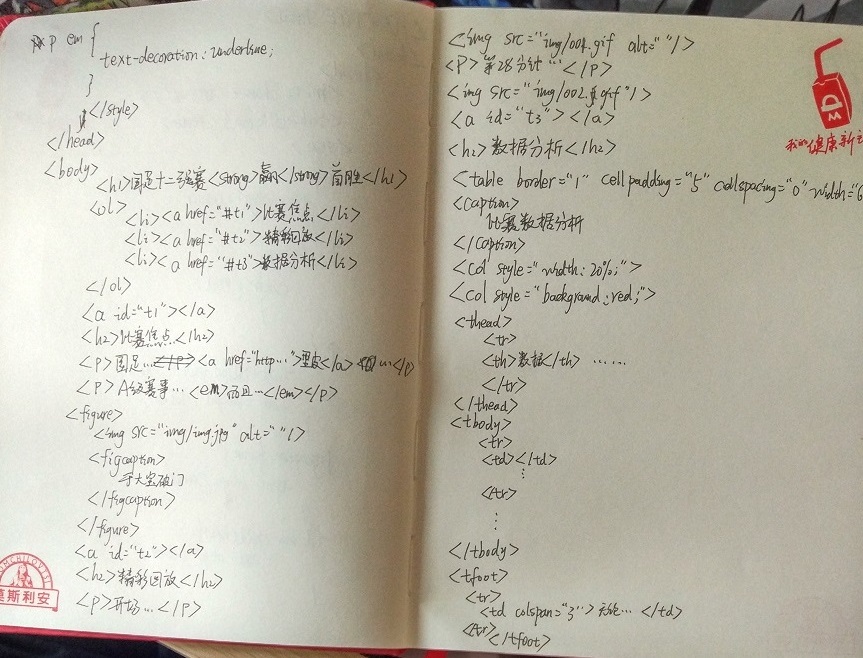 p em {
text-decoration: underline;
}
</style>
</head>
<body>
<h1>国足十二强赛<strong>赢</strong>首胜</h1>
<ol>
<li><a href="#t1">比赛焦点</li>
<li><a href="#t2">精彩回放</li>
<li><a href="#t3">数据分析</li>
</ol>
<a id="t1"></a>
<h2>比赛焦点</h2>
<p>国足...</p><a href="http...">里皮</a> ...</p>
<p>A级赛事...<em>而且...</em></p>
<figure>
<img src="img/img.jpg" alt=" "/>
<figcaption>
于大宝破门
</figcaption>
</figure>
<a id="t2"></a>
<h2>精彩回放</h2>
<p>开场...</p>
莫斯利安
<img src="img/001.gif alt=" "/>
<p>第28分钟...</p>
<img src="img/002.gif"/>
<a id="t3"></a>
<h2>数据分析</h2>
<table border="1" cellpadding="5" cellspacing="0" width="6
<caption>
比赛数据分析
</caption>
<col style="width: 20%;">
<col style="background:red;">
<thead>
<tr>
<th>数据</th> ......
</tr>
</thead>
<tbody>
<tr>
<td></td>
⋮
</tr>
⋮
</tbody>
<tfoot>
<tr>
<td colspan="3"> ... </td>
</tr>
</tfoot>
我的健康新